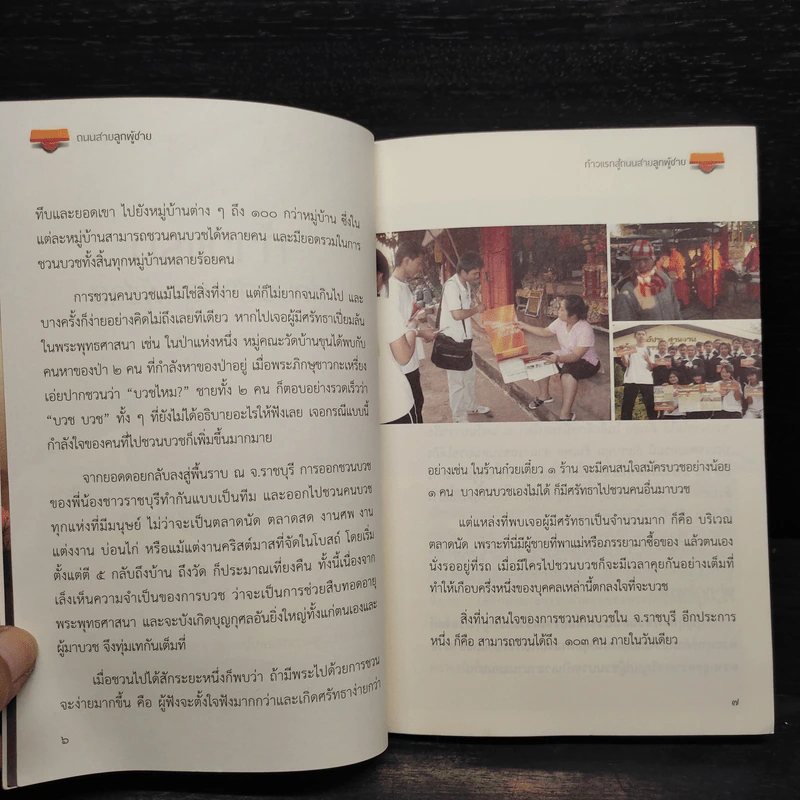 ถนนสายลูกผู้ชาย
ทึบและยอดเขา ไปยังหมู่บ้านต่าง ๆ ถึง ๑๐๐ กว่าหมู่บ้าน ซึ่งใน
แต่ละหมู่บ้านสามารถชวนคนบวชได้หลายคน และมียอดรวมในการ
ชวนบวชทั้งสิ้นทุกหมู่บ้านหลายร้อยคน
การชวนคนบวชแม้ไม่ใช่สิ่งที่ง่าย แต่ก็ไม่ยากจนเกินไป และ
บางครั้งก็ง่ายอย่างคิดไม่ถึงเลยทีเดียว หากไปเจอผู้มีศรัทธาเปี่ยมล้น
ในพระพุทธศาสนา เช่น ในป่าแห่งหนึ่ง หมู่คณะวัดบ้านขุนได้พบกับ
คนหาของป่า ๒ คน ที่กำลังหาของป่าอยู่ เมื่อพระภิกษุชาวกะเหรี่ยง
เอ่ยปากชวนว่า “บวชไหม?” ชายทั้ง ๒ คน ก็ตอบอย่างรวดเร็วว่า
“บวช บวช” ทั้ง ๆ ที่ยังไม่ได้อธิบายอะไรให้ฟังเลย เจอกรณีแบบนี้
กำลังใจของคนที่ไปชวนบวชก็เพิ่มขึ้นมากมาย
จากยอดดอยกลับลงสู่พื้นราบ ณ จ.ราชบุรี การออกชวนบวช
ของพี่น้องชาวราชบุรีทำกันแบบเป็นทีม และออกไปชวนคนบวช
ทุกแห่งที่มีมนุษย์ ไม่ว่าจะเป็นตลาดนัด ตลาดสด งานศพ งาน
แต่งงาน บ่อนไก่ หรือแม้แต่งานคริสต์มาสที่จัดในโบสถ์ โดยเริ่ม
ตั้งแต่ตี ๕ กลับถึงบ้าน ถึงวัด ก็ประมาณเที่ยงคืน ทั้งนี้เนื่องจาก
เล็งเห็นความจำเป็นของการบวช ว่าจะเป็นการช่วยสืบทอดอายุ
พระพุทธศาสนา และจะบังเกิดบุญกุศลอันยิ่งใหญ่ทั้งแก่ตนเองและ
ผู้มาบวช จึงทุ่มเทกันเต็มที่
เมื่อชวนไปได้สักระยะหนึ่งก็พบว่า ถ้ามีพระไปด้วยการชวน
จะง่ายมากขึ้น คือ ผู้ฟังจะตั้งใจฟังมากกว่าและเกิดศรัทธาง่ายกว่า
๖
ก้าวแรกสู่ถนนสายลูกผู้ชาย
อย่างเช่น ในร้านก๋วยเตี๋ยว ๑ ร้าน จะมีคนสนใจสมัครบวชอย่างน้อย
๑ คน บางคนบวชเองไม่ได้ ก็มีศรัทธาไปชวนคนอื่นมาบวช
แต่แหล่งที่พบเจอผู้มีศรัทธาเป็นจำนวนมาก ก็คือ บริเวณ
ตลาดนัด เพราะที่นี่มีผู้ชายที่พาแม่หรือภรรยามาซื้อของ แล้วตนเอง
นั่งรออยู่ที่รถ เมื่อมีใครไปชวนบวชก็จะมีเวลาคุยกันอย่างเต็มที่
ทำให้เกือบครึ่งหนึ่งของบุคคลเหล่านี้ตกลงใจที่จะบวช
สิ่งที่น่าสนใจของการไปชวนคนบวชใน จ.ราชบุรี อีกประการ
หนึ่ง ก็คือ สามารถชวนได้ถึง ๑๐๓ คน ภายในวันเดียว
๗